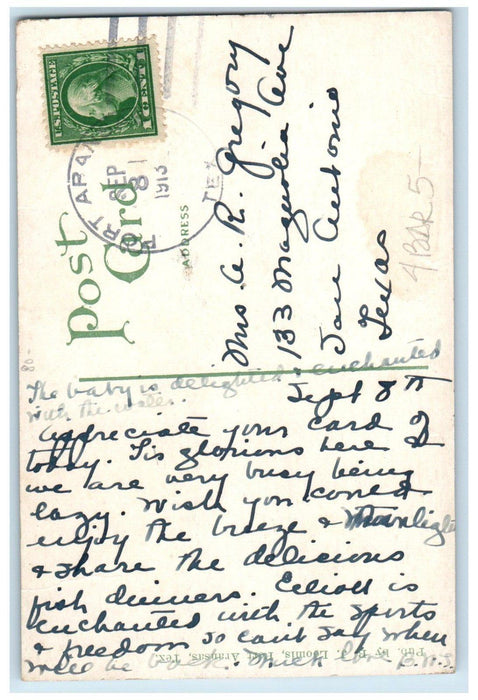 U.S. POSTAGE
1 CENT 1
PORT ARAN
SEP
8
1913
TEX
Post
Card
ADDRESS
Mrs. A. R. Gregory
133 Magnolia Ave
San Antonio
Texas
4 BAR 5-
80-
The baby is delighted & enchanted
with the water.
Sept 8th
Appreciate your card of
today. Tis glorious here &
we are very busy being
lazy. Wish you could
enjoy the breeze & Moonlight
& share the delicious
fish dinners. Elliott is
enchanted with the sports
& freedom so can't say when
we'll be back. Much love
Pub. by P. Loomis, Port Aransas, Tex.